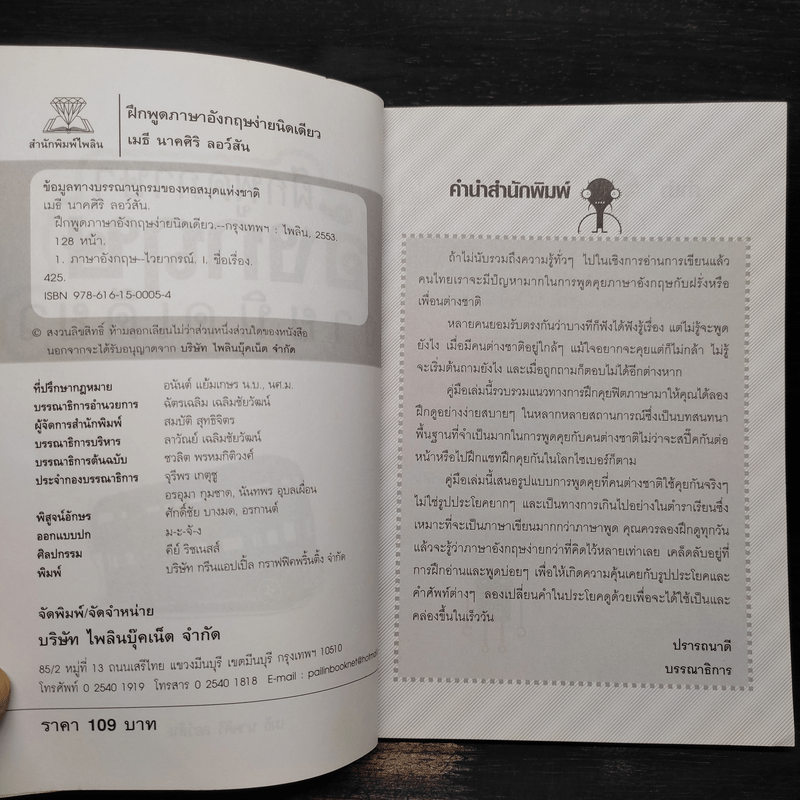 สำนักพิมพ์ไพลิน
ฝึกพูดภาษาอังกฤษง่ายนิดเดียว
เมธี นาคศิริ ลอว์สัน
ข้อมูลทางบรรณานุกรมของหอสมุดแห่งชาติ
เมธี นาคศิริ ลอว์สัน.
ฝึกพูดภาษาอังกฤษง่ายนิดเดียว.--กรุงเทพฯ : ไพลิน, 2553.
128 หน้า.
1. ภาษาอังกฤษ--ไวยากรณ์. I. ชื่อเรื่อง.
425.
ISBN 978-616-15-0005-4
© สงวนลิขสิทธิ์ ห้ามลอกเลียนไม่ว่าส่วนหนึ่งส่วนใดของหนังสือ
นอกจากจะได้รับอนุญาตจาก บริษัท ไพลินบุ๊คเน็ต จำกัด
ที่ปรึกษากฎหมาย อนันต์ แย้มเกษร น.บ., นศ.ม.
บรรณาธิการอำนวยการ ฉัตรเฉลิม เฉลิมชัยวัฒน์
ผู้จัดการสำนักพิมพ์ สมบัติ สุทธิจิตร
บรรณาธิการบริหาร ลาวัณย์ เฉลิมชัยวัฒน์
บรรณาธิการต้นฉบับ ชวลิต พรหมกิติวงศ์
ประจำกองบรรณาธิการ จุรีพร เกตุชู
อรอุมา กุมชาด, นันทพร อุบลเผื่อน
พิสูจน์อักษร ศักดิ์ชัย บางมด, อรกานต์
ออกแบบปก ม-ะ-จั-ง
ศิลปกรรม คีย์ ริชเนสส์
พิมพ์ บริษัท กรีนแอปเปิ้ล กราฟฟิคพริ้นติ้ง จำกัด
จัดพิมพ์/จัดจำหน่าย
บริษัท ไพลินบุ๊คเน็ต จำกัด
85/2 หมู่ที่ 13 ถนนเสรีไทย แขวงมีนบุรี เขตมีนบุรี กรุงเทพฯ 10510
โทรศัพท์ 0 2540 1919 โทรสาร 0 2540 1818 E-mail : pailinbooknet@hotmai
ราคา 109 บาท
คำนำสำนักพิมพ์
ถ้าไม่นับรวมถึงความรู้ทั่วๆ ไปในเชิงการอ่านการเขียนแล้ว
คนไทยเราจะมีปัญหามากในการพูดคุยภาษาอังกฤษกับฝรั่งหรือ
เพื่อนต่างชาติ
หลายคนยอมรับตรงกันว่าบางทีก็ฟังได้ฟังรู้เรื่อง แต่ไม่รู้จะพูด
ยังไง เมื่อมีคนต่างชาติอยู่ใกล้ๆ แม้ใจอยากจะคุยแต่ก็ไม่กล้า ไม่รู้
จะเริ่มต้นถามยังไง และเมื่อถูกถามก็ตอบไม่ได้อีกต่างหาก
คู่มือเล่มนี้รวบรวมแนวทางการฝึกคุยฟิตภาษามาให้คุณได้ลอง
ฝึกดูอย่างง่ายสบายๆ ในหลากหลายสถานการณ์ซึ่งเป็นบทสนทนา
พื้นฐานที่จำเป็นมากในการพูดคุยกับคนต่างชาติไม่ว่าจะสปี๊คกันต่อ
หน้าหรือไปฝึกแชทฝึกคุยกันในโลกไซเบอร์ก็ตาม
คู่มือเล่มนี้เสนอรูปแบบการพูดคุยที่คนต่างชาติใช้คุยกันจริงๆ
ไม่ใช่รูปประโยคยากๆ และเป็นทางการเกินไปอย่างในตำราเรียนซึ่ง
เหมาะที่จะเป็นภาษาเขียนมากกว่าภาษาพูด คุณควรลองฝึกดูทุกวัน
แล้วจะรู้ว่าภาษาอังกฤษง่ายกว่าที่คิดไว้หลายเท่าเลย เคล็ดลับอยู่ที่
การฝึกอ่านและพูดบ่อยๆ เพื่อให้เกิดความคุ้นเคยกับรูปประโยคและ
คำศัพท์ต่างๆ ลองเปลี่ยนคำในประโยคดูด้วยเพื่อจะได้ใช้เป็นและ
คล่องขึ้นในเร็ววัน
ปรารถนาดี
บรรณาธิการ